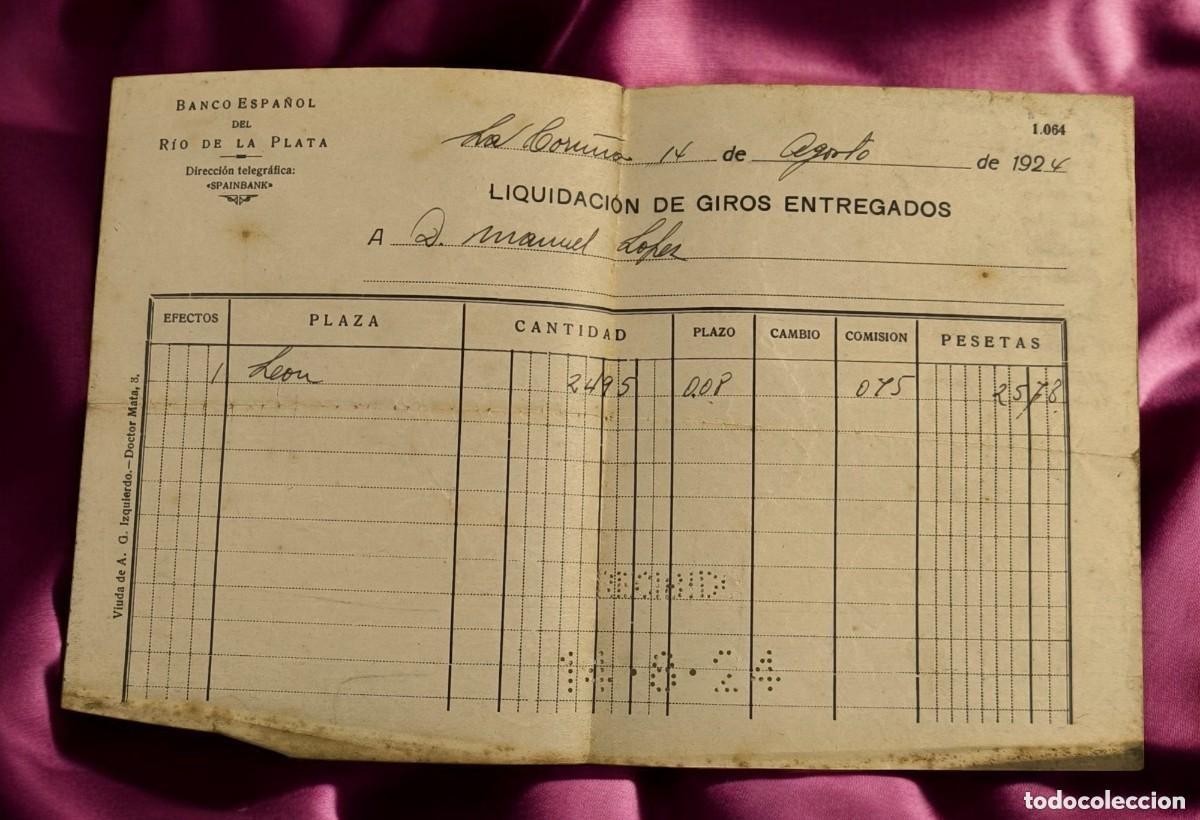 BANCO ESPAÑOL
DEL
RÍO DE LA PLATA
Dirección telegráfica:
«SPAINBANK»
1.064
La Coruña 14 de Agosto de 1924
LIQUIDACIÓN DE GIROS ENTREGADOS
A D. Manuel Lopez
EFECTOS PLAZA CANTIDAD PLAZO CAMBIO COMISION PESETAS
1 Leon 2495 0.08 075 2578
Viuda de A. G. Izquierdo.—Doctor Mata, 3.
14·8·24
todocoleccion